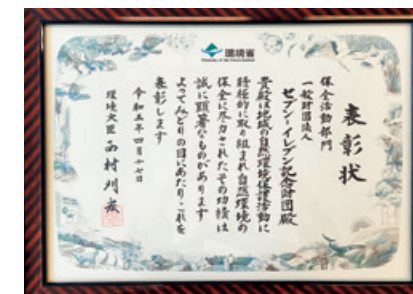 環境省
表彰状
保全活動部門
一般財団法人
セブン-イレブン記念財団殿
貴殿は地域の自然環境保護活動に
積極的に取り組まれ自然環境の
保全に尽力されたその功績は
誠に顕著なものがあります
よってみどりの日にあたりこれを
表彰します
令和五年四月十七日
環境大臣 西村明宏